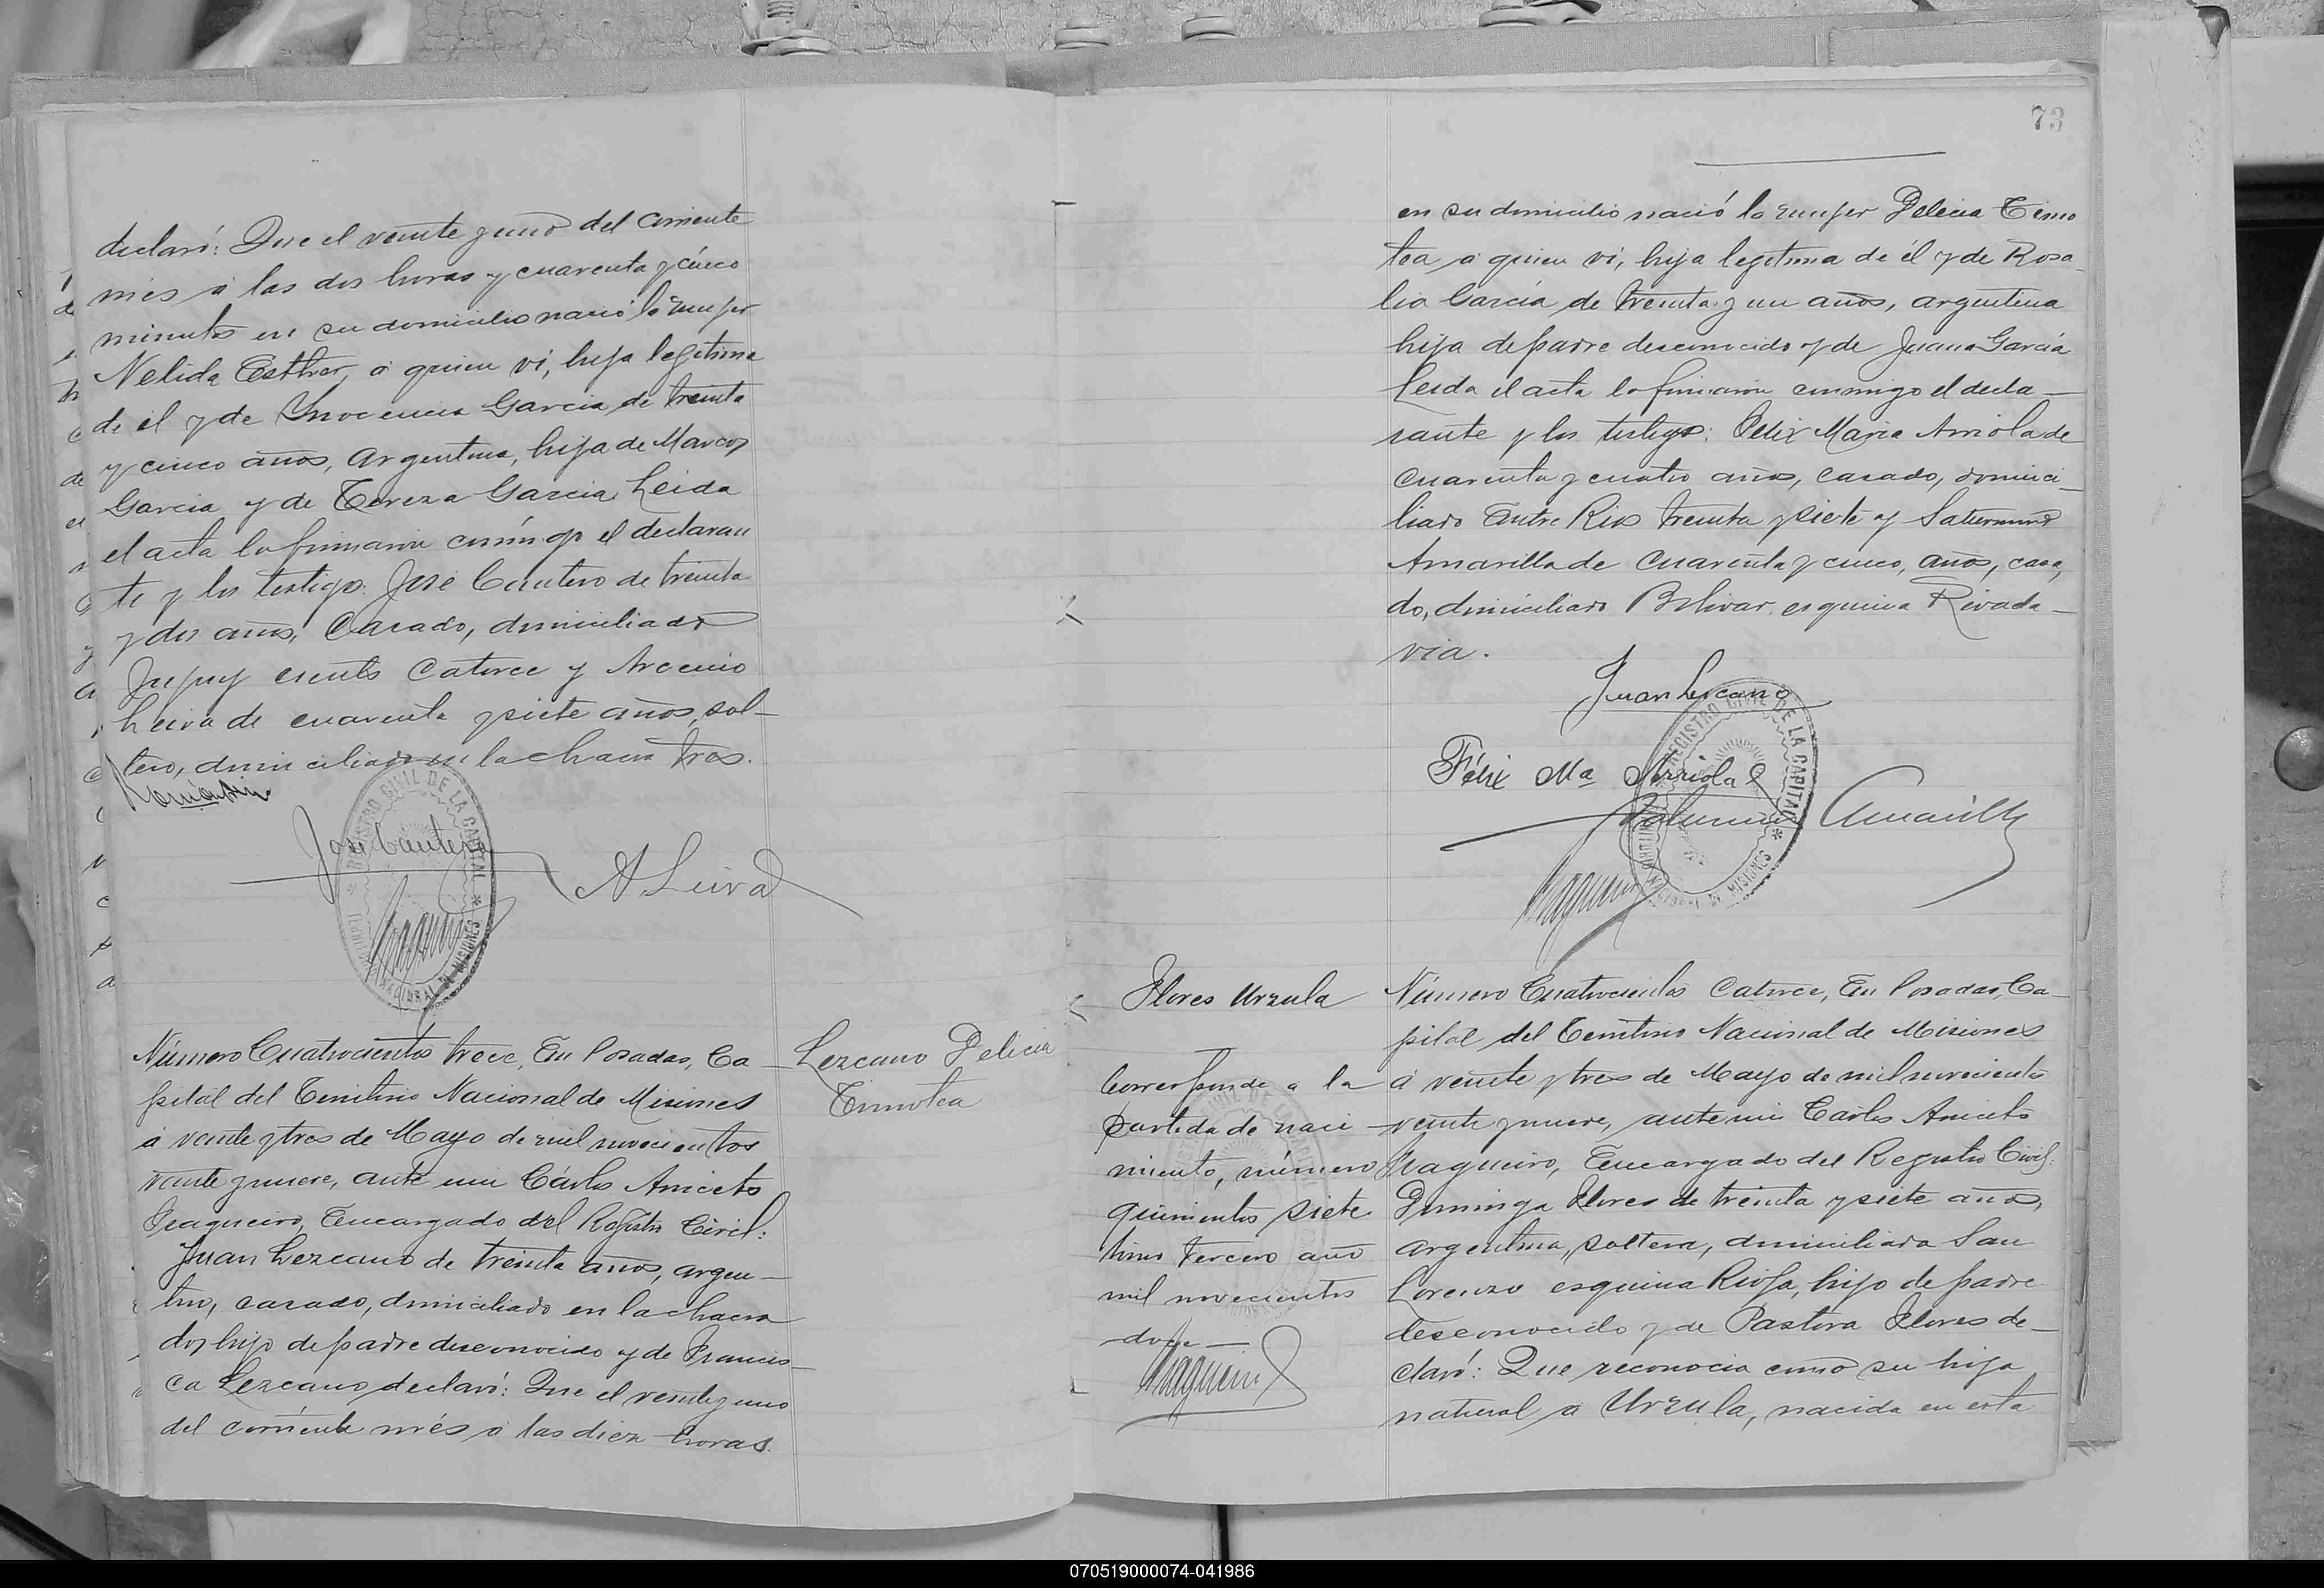 declaró: Que el veinte y uno del corriente
mes á las dos horas y cuarenta y cinco
minutos en su domicilio nació la mujer
Nelida Esther, á quien ví, hija legitima
de él y de Inocencia Garcia de treinta
y cinco años, Argentina, hija de Marcos
Garcia y de Tereza Garcia Leida
el acta la firmaron conmigo el declaran
te y los testigos: José Cantero de treinta
y dos años, Casado, domiciliado
Jujuy ciento Catorce y Arcenio
Leiva de cuarenta y siete años, sol-
tero, domiciliado en la chacra tres.
José Cantero
A Leiva
REGISTRO CIVIL DE LA CAPITAL
TERRITORIO NACIONAL DE MISIONES
Número Cuatrocientos trece, En Posadas, Ca-
pital del Territorio Nacional de Misiones
á veinte y tres de Mayo de mil novecientos
veinte y nueve, ante mi Cárlos Aniceto
Fragueiro, Encargado del Registro Civil:
Juan Lezcano de treinta años, argen-
tino, casado, domiciliado en la chacra
dos hijo de padre desconocido y de Francis-
ca Lezcano, declaró: Que el veinte y uno
del corriente més á las diez horas
Lezcano Delicia
Timotea
73
en su domicilio nació la mujer Delicia Timo
tea á quien ví, hija legitima de él y de Rosa-
lia García de treinta y un años, argentina
hija de padre desconocido y de Juana García
Leida el acta la firmaron conmigo el decla-
rante y los testigos: Felix Maria Arriola de
cuarenta y cuatro años, casado, domici-
liado Entre Rios treinta y siete y Saturnino
Amarilla de cuarenta y cinco, años, casa,
do, domiciliado Bolivar esquina Rivada-
via.
Juan Lezcano
Félix Ma Arriola
Saturnino Amarilla
REGISTRO CIVIL DE LA CAPITAL
TERRITORIO NACIONAL DE MISIONES
Fragueiro
Flores Urzula
Corresponde a la
partida de naci-
miento, número
quinientos siete
tomo tercero año
mil novecientos
doce
Fragueiro
Número Cuatrocientos Catorce, En Posadas, Ca-
pital del Territorio Nacional de Misiones
á veinte y tres de Mayo de mil novecientos
veinte y nueve, ante mi Carlos Aniceto
Fragueiro, Encargado del Registro Civil:
Dominga Flores de treinta y siete años,
argentina, soltera, domiciliada San
Lorenzo esquina Rioja, hijo de padre
desconocido y de Pastora Flores de-
claró: Que reconocia como su hija
natural a Urzula, nacida en esta
070519000074-041986